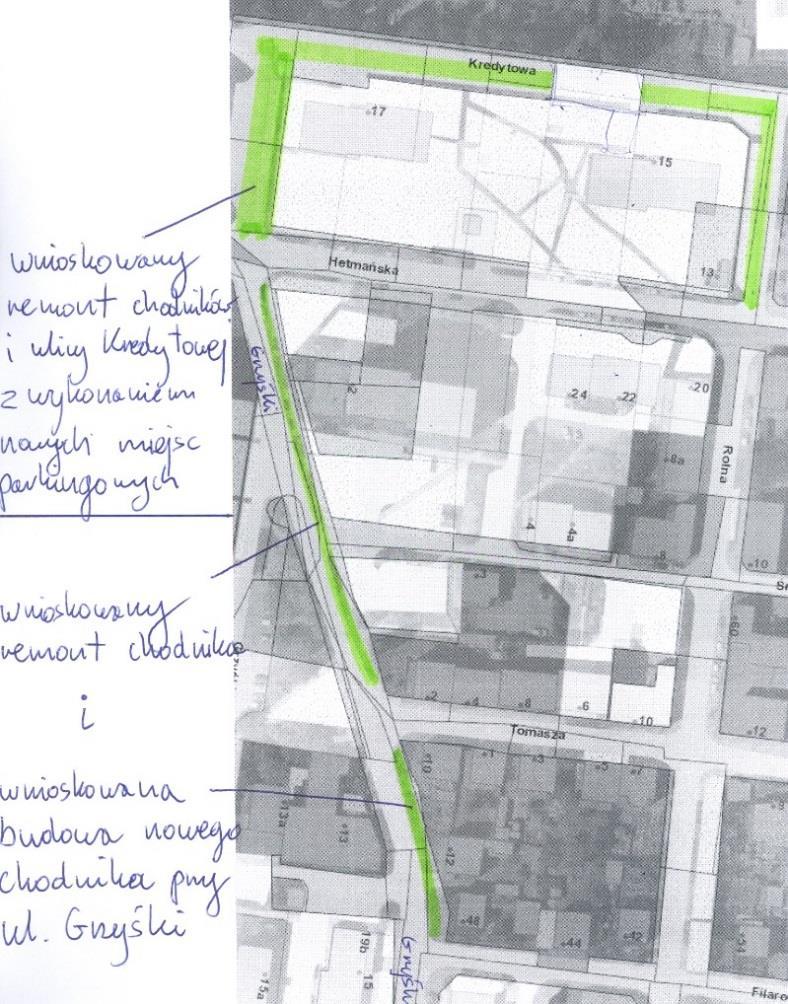 Kredytowa
17
15
13
wnioskowany
remont chodników
i ulicy Kredytowej
z wykonaniem
nowych miejsc
parkingowych
Hetmańska
Grzyśki
2
24
22
20
8a
Rolna
4
4a
8
10
wnioskowany
remont chodnika
i
3
60
2
4
8
6
10
12
Tomasza
wnioskowana
budowa nowego
chodnika przy
ul. Grzyśki
10
1
3
5
7
13a
13
12
48
44
42
51
19b
15
15a
Grzyśki
Filaro